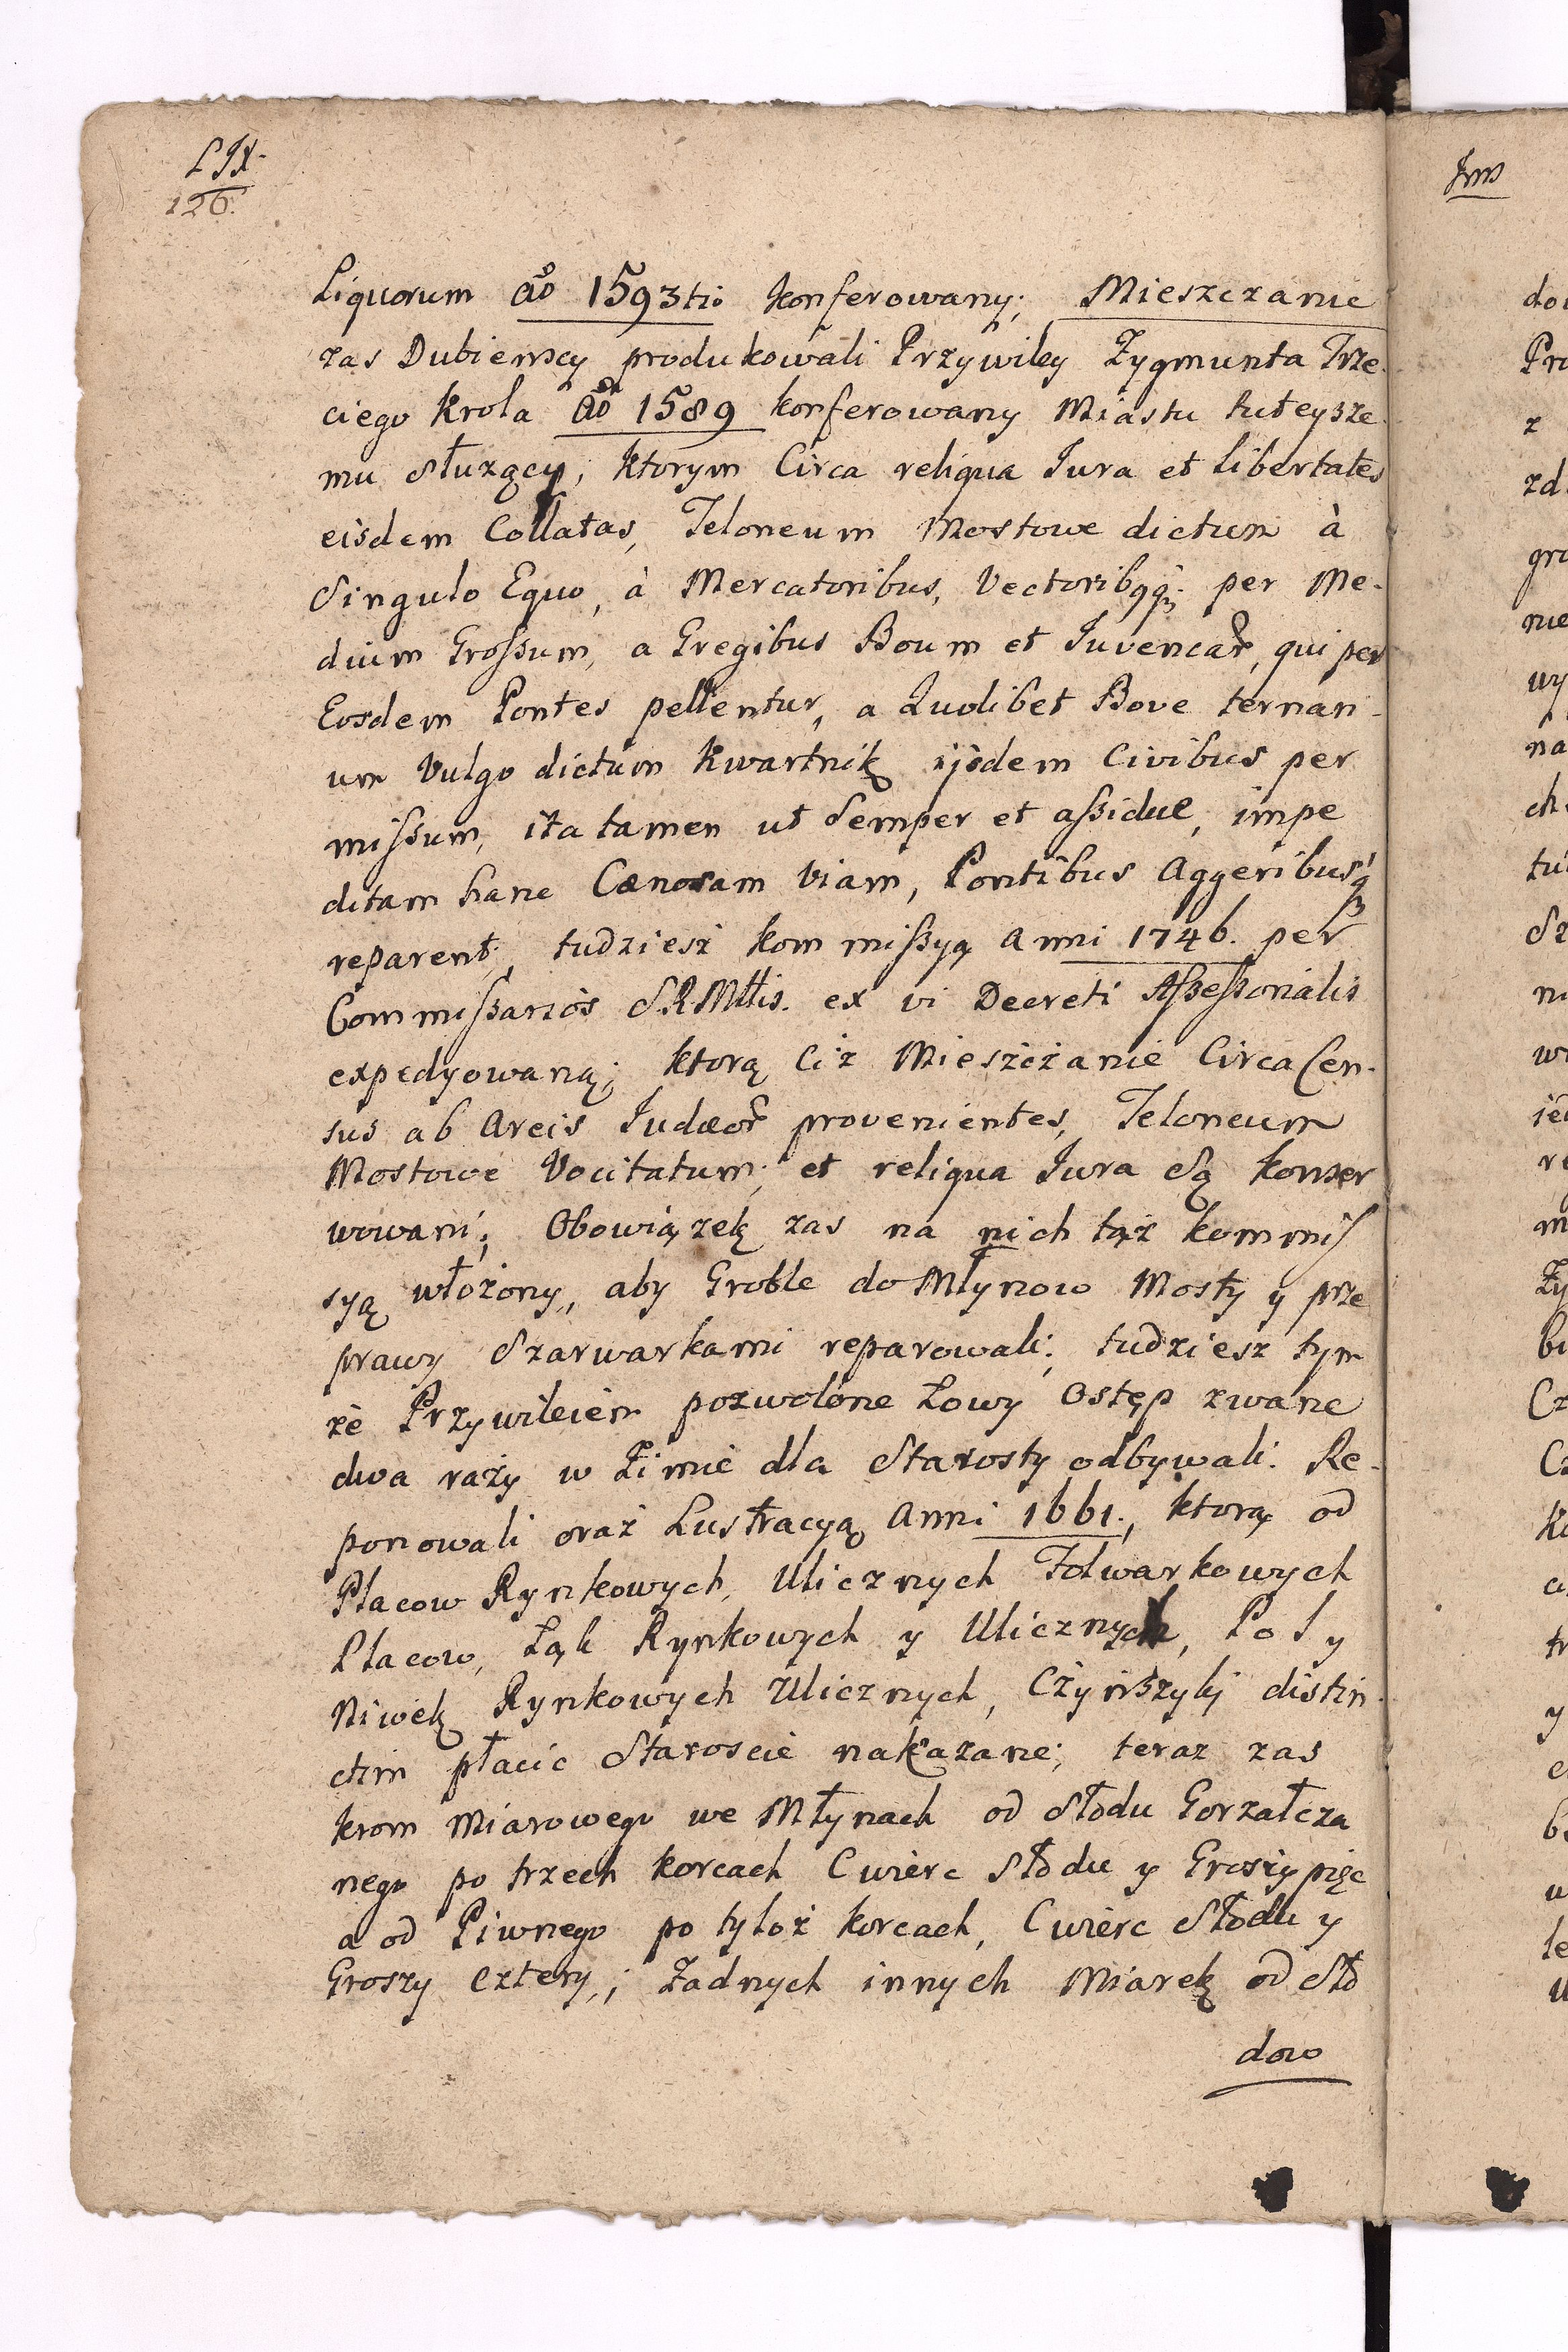 LIX.
126.
Liquorum aõ 1593tio konferowany; Mieszczanie
zas Dubienscy produkowali Przywiley Zygmunta Trze-
ciego Krola aõ 1589 konferowany Miastu tuteysze-
mu słuzący, ktorym Circa reliqua Jura et libertates
eisdem Collatas, Teloneum Mostowe dictum à
Singulo Equo, à Mercatoribus, Vectoribqq; per Me-
dium Grossum, a Gregibus Boum et Juvencar, qui per
Eosdem Pontes pellentur, a Quolibet Bove ternari-
um Vulgo dictum Kwartnik ijsdem Civibus per
missum, ita tamen ut Semper et assidue, impe
ditam hanc Cænosam Viam, Pontibus Aggeribusq;
reparent, tudziesz kommissyą Anni 1746. per
Commissarios S.R.Mttis. ex vi Decreti Assessorialis
expedyowaną; ktorą Ciz Mieszczanie Circa Cen-
sus ab Areis Judæor provenientes, Teloneum
Mostowe Vocitatum; et reliqua Jura są konser
wowani; Obowiązek zas na nich taz kommis
syą włożony, aby Groble do Młynow Mosty y prze
prawy Szarwarkami reparowali; tudziesz tym
że Przywileiem pozwolone Łowy Ostęp zwane
dwa razy w Zimie dla Starosty odbywali. Re-
ponowali oraz Lustracyą Anni 1661., ktorą od
Placow Rynkowych, Ulicznych Folwarkowych
Placow, Łąk Rynkowych y Ulicznych, Pol y
Niwek Rynkowych Ulicznych, Czynszyki distin-
ctim płacic Staroscie nakazane; teraz zas
krom Miarowego we Młynach od Słodu Gorzałcza
nego po trzech korcach Cwierc Słodu y Groszy pięc
a od Piwnego po tyloz korcach, Cwierc Słodu y
Groszy cztery,; Zadnych innych Miarek od Sło
dow
Jms